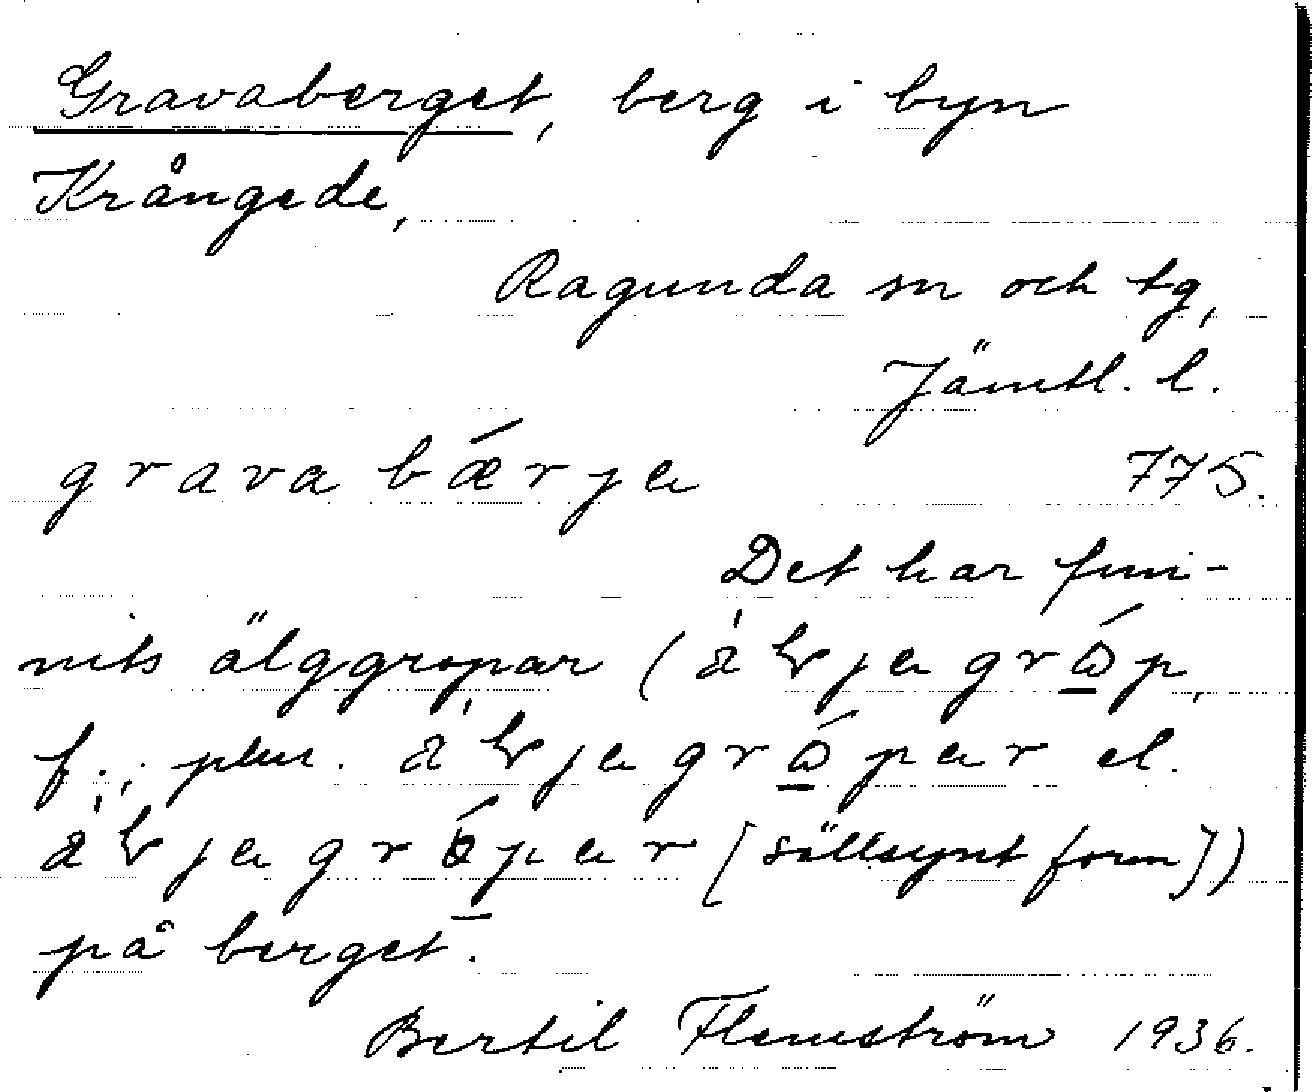 Gravaberget, berg i byn
Krångede,
Ragunda sn och tg,
Jämtl. l.
grava bǽrja 775.
Det har fun-
nits älggropar (
f.; plur. el.
[sällsynt form])
på berget.
Bertil Flemström 1936.